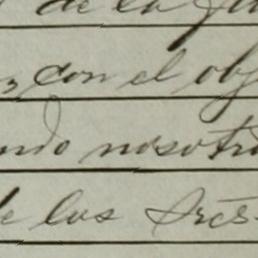 de la
con el obj
ndo nosotr
de los Sres.